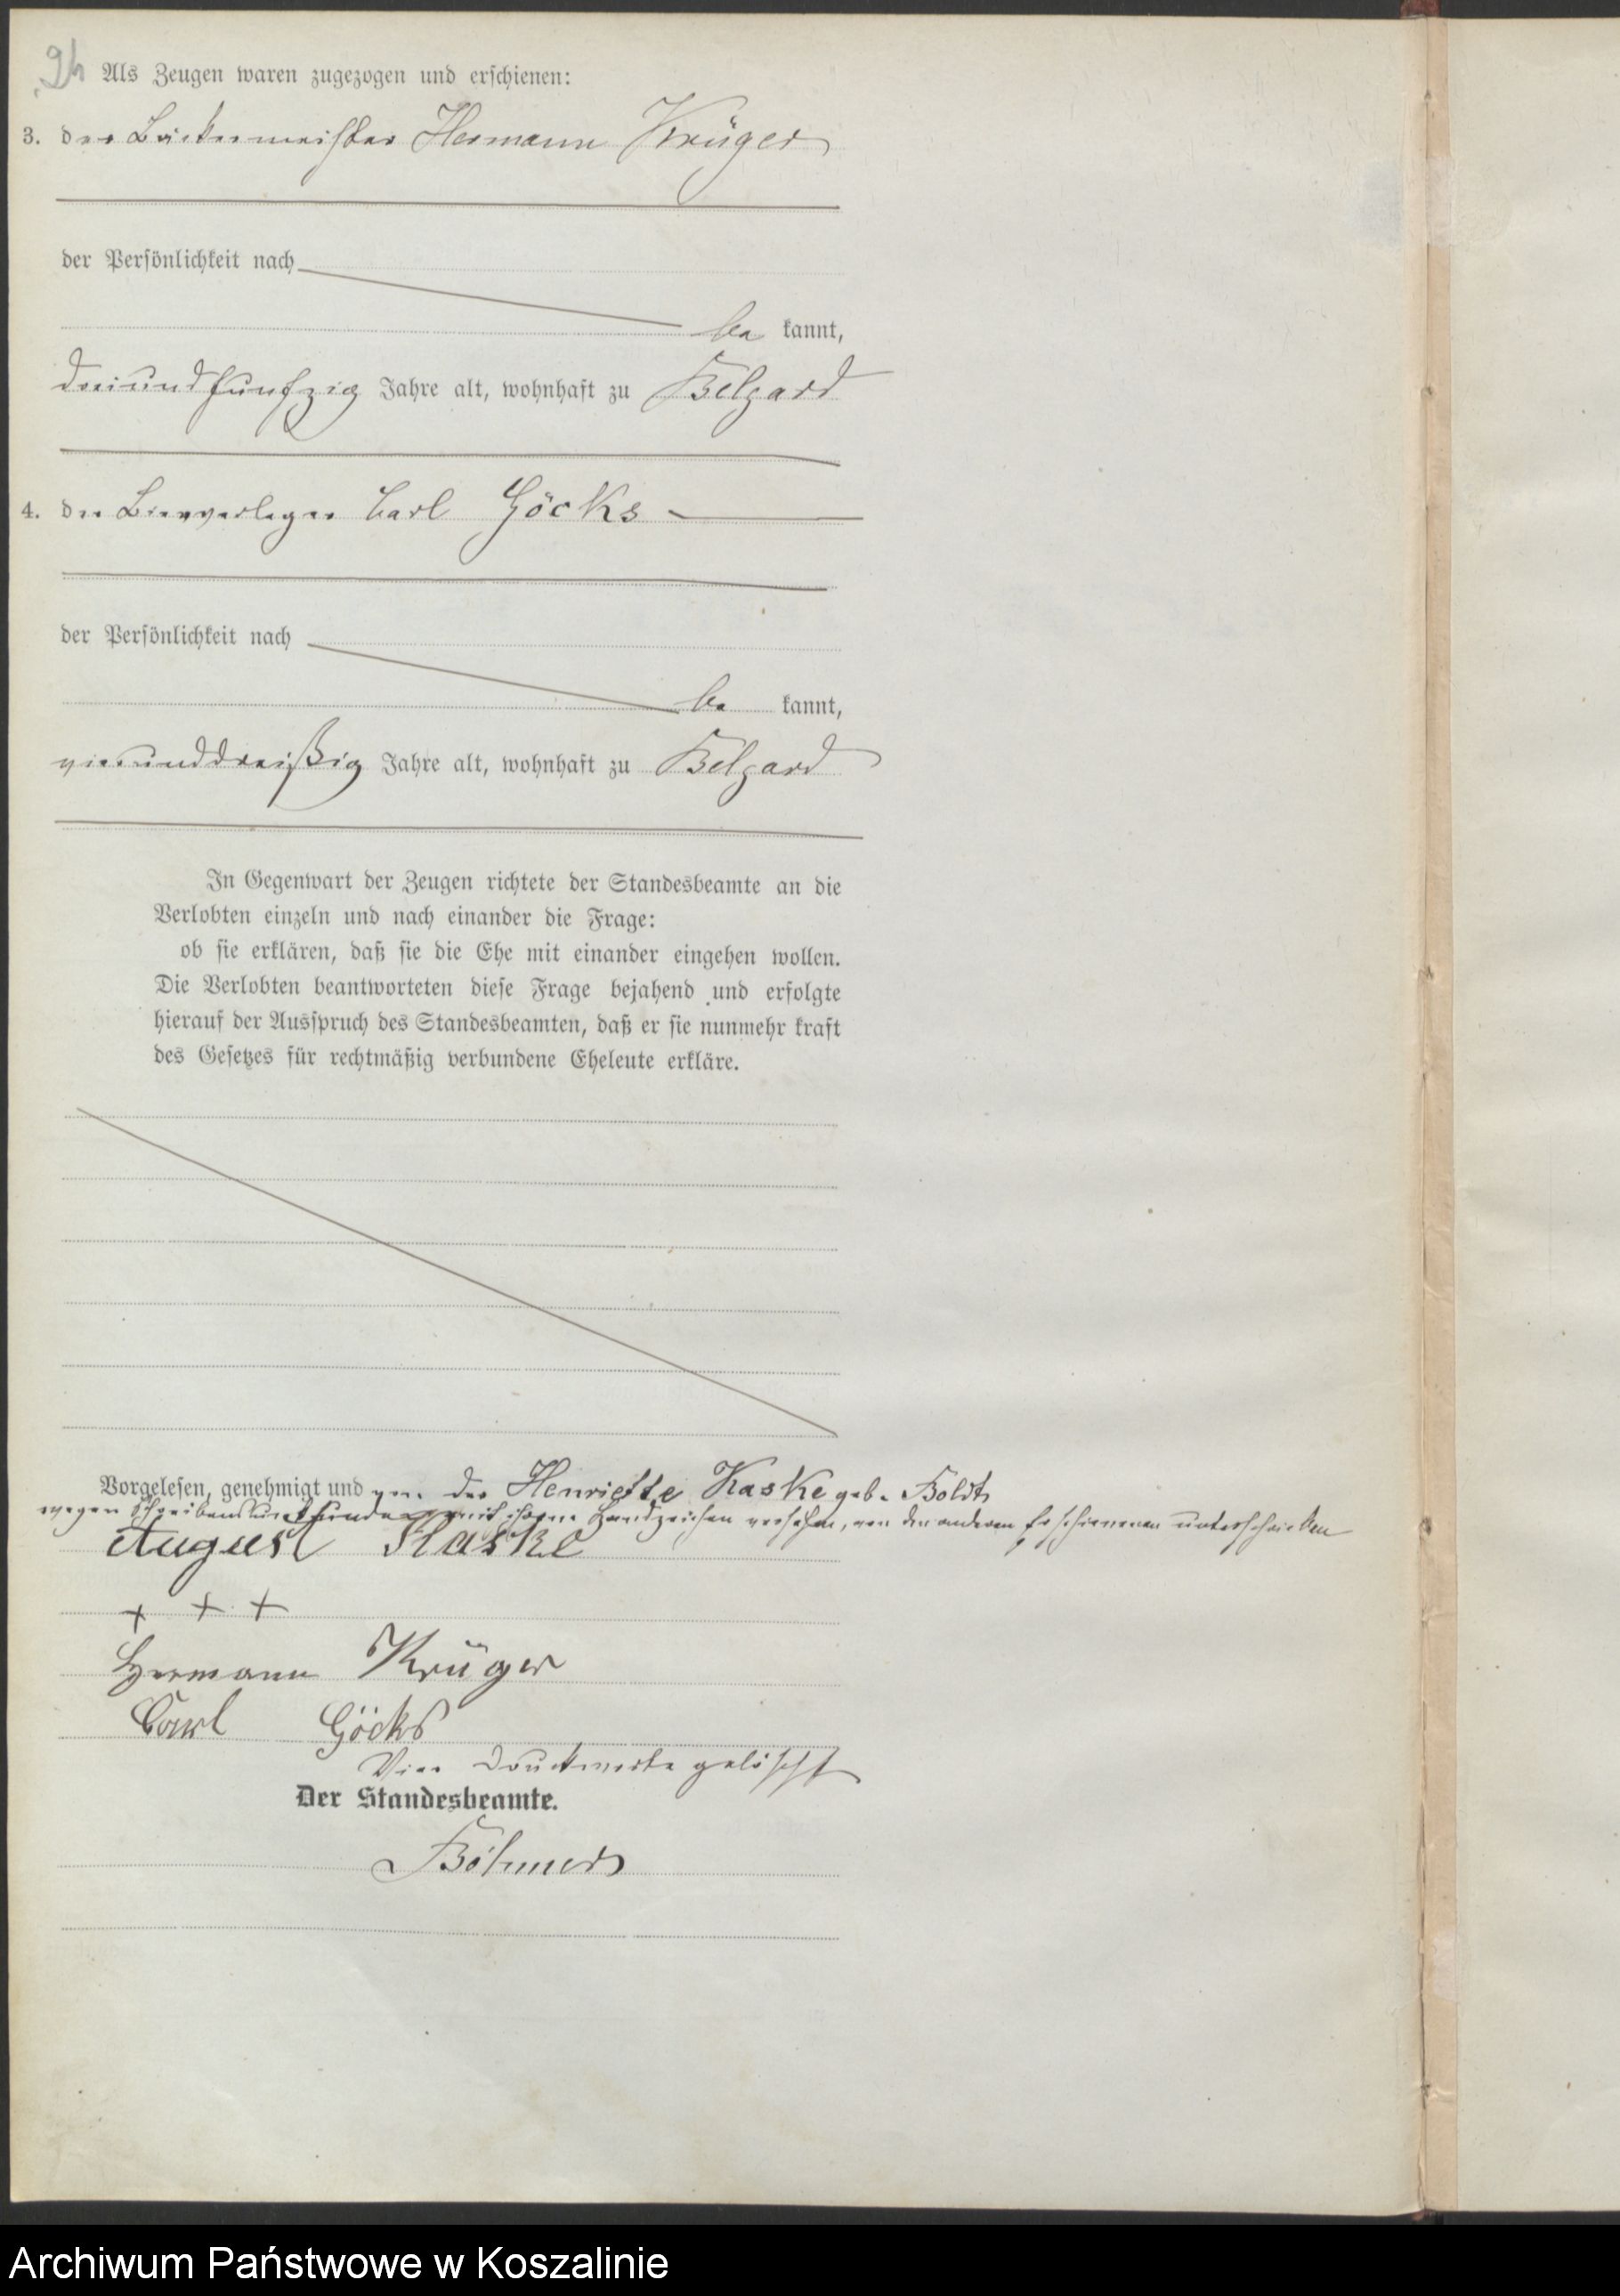 Als Zeugen waren zugezogen und erschienen:
3. der Bäckermeister Hermann Krüger
der Persönlichkeit nach
be kannt,
dreiundfünfzig Jahre alt, wohnhaft zu Belgard
4. der Bierverleger Carl Göcks
der Persönlichkeit nach
be kannt,
vierunddreißig Jahre alt, wohnhaft zu Belgard
In Gegenwart der Zeugen richtete der Standesbeamte an die
Verlobten einzeln und nach einander die Frage:
ob sie erklären, daß sie die Ehe mit einander eingehen wollen.
Die Verlobten beantworteten diese Frage bejahend und erfolgte
hierauf der Ausspruch des Standesbeamten, daß er sie nunmehr kraft
des Gesetzes für rechtmäßig verbundene Eheleute erkläre.
Vorgelesen, genehmigt und von der Henriette Kaske geb. Boldt
wegen Schreibensunkunde mit ihrem Handzeichen versehen, von den anderen Erschienenen unterschrieben
August Kaske
+ + +
Hermann Krüger
Carl Göcks
Vier Druckworte gelöscht
Der Standesbeamte.
Böhmer
Archiwum Państwowe w Koszalinie